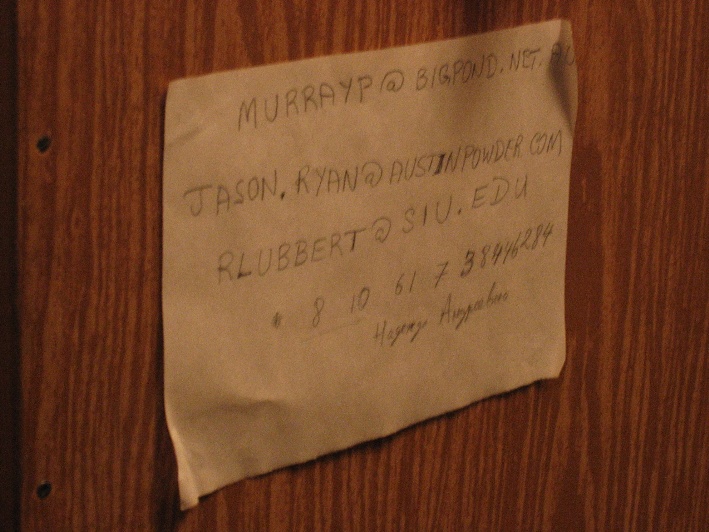 MURRAYP@BIGPOND.NET.AU
JASON.RYAN@AUSTINPOWDER.COM
RLUBBERT@SIU.EDU
* 8 10 61 7 38446284